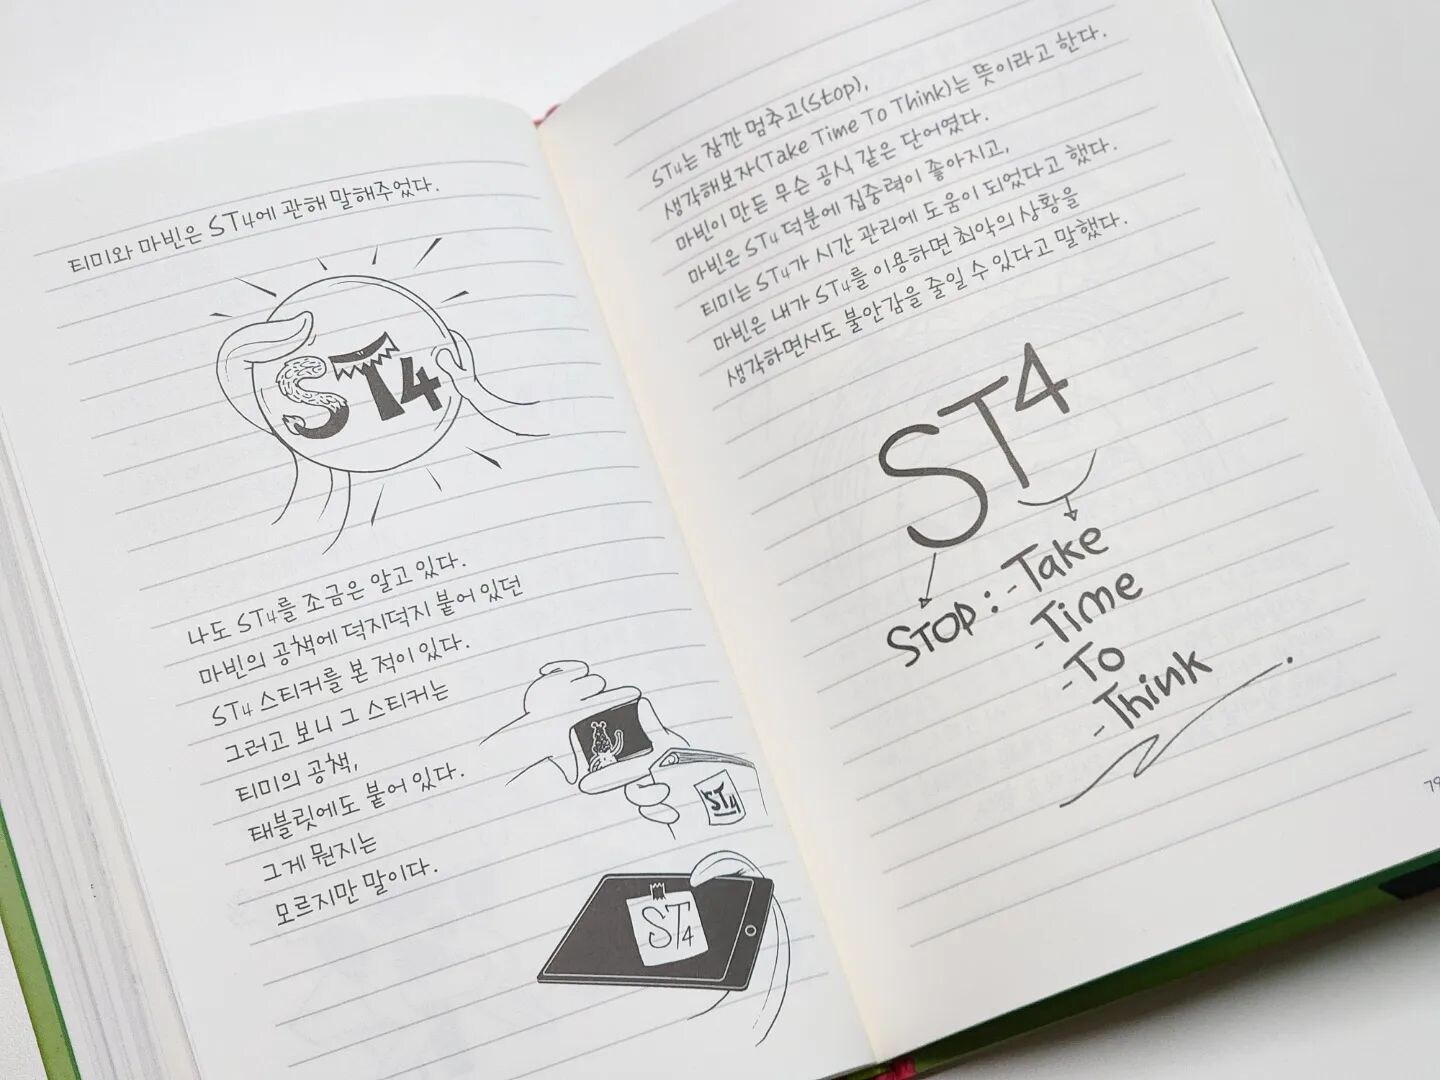 티미와 마빈은 ST4에 관해 말해주었다.
ST4
나도 ST4를 조금은 알고 있다.
마빈의 공책에 덕지덕지 붙어 있던
ST4 스티커를 본 적이 있다.
그러고 보니 그 스티커는
티미의 공책,
태블릿에도 붙어 있다.
그게 뭔지는
모르지만 말이다.
ST4
ST4
ST4는 잠깐 멈추고(Stop),
생각해보자(Take Time To Think)는 뜻이라고 한다.
마빈이 만든 무슨 공식 같은 단어였다.
마빈은 ST4 덕분에 집중력이 좋아지고,
티미는 ST4가 시간 관리에 도움이 되었다고 했다.
마빈은 내가 ST4를 이용하면 최악의 상황을
생각하면서도 불안감을 줄일 수 있다고 말했다.
ST4
STOP : - Take
- Time
- To
- Think
79